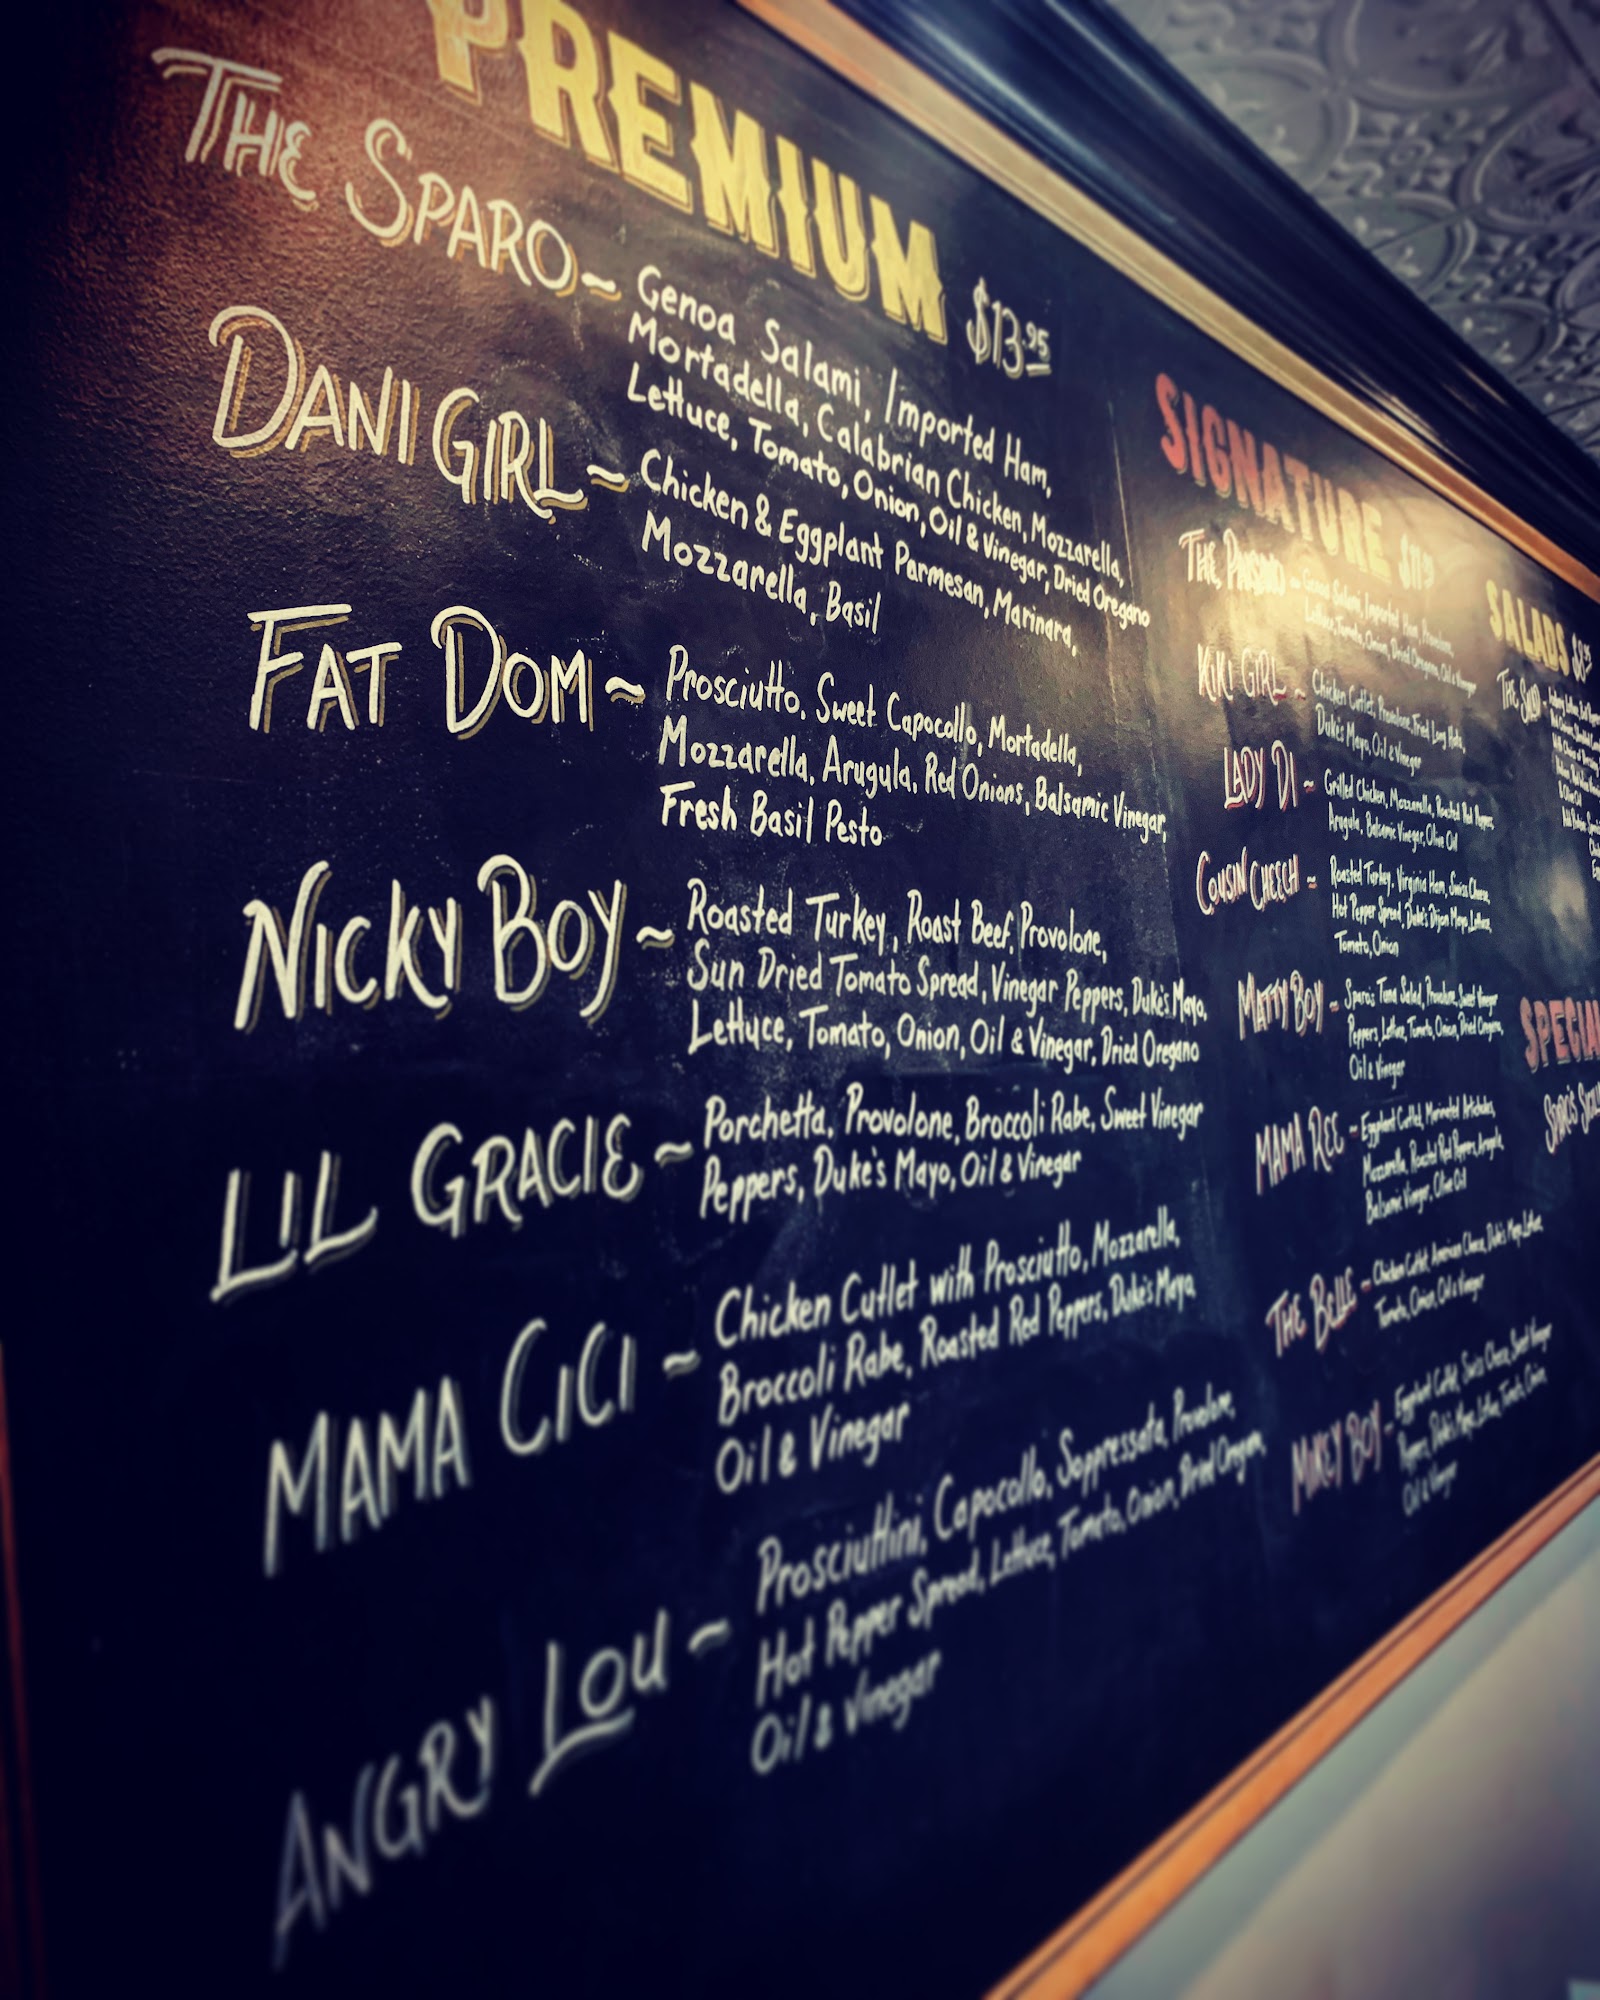 PREMIUM $13.95
THE SPARO ~ Genoa Salami, Imported Ham,
Mortadella, Calabrian Chicken, Mozzarella,
Lettuce, Tomato, Onion, Oil & Vinegar, Dried Oregano
DANI GIRL ~ Chicken & Eggplant Parmesan, Marinara,
Mozzarella, Basil
FAT DOM ~ Prosciutto, Sweet Capocollo, Mortadella,
Mozzarella, Arugula, Red Onions, Balsamic Vinegar,
Fresh Basil Pesto
NICKY BOY ~ Roasted Turkey, Roast Beef, Provolone,
Sun Dried Tomato Spread, Vinegar Peppers, Duke's Mayo,
Lettuce, Tomato, Onion, Oil & Vinegar, Dried Oregano
LIL GRACIE ~ Porchetta, Provolone, Broccoli Rabe, Sweet Vinegar
Peppers, Duke's Mayo, Oil & Vinegar
MAMA CICI ~ Chicken Cutlet with Prosciutto, Mozzarella,
Broccoli Rabe, Roasted Red Peppers, Duke's Mayo
Oil & Vinegar
ANGRY LOU ~ Prosciuttini, Capocollo, Soppressata, Provolone,
Hot Pepper Spread, Lettuce, Tomato, Onion, Dried Oregano,
Oil & Vinegar
SIGNATURE
THE PAISANO ~ Genoa Salami, Imported Ham, Provolone,
Lettuce, Tomato, Onion, Dried Oregano, Oil & Vinegar
KIKI GIRL ~ Chicken Cutlet, Provolone, Fried Long Hots,
Duke's Mayo, Oil & Vinegar
LADY DI ~ Grilled Chicken, Mozzarella, Roasted Red Peppers,
Arugula, Balsamic Vinegar, Olive Oil
COUSIN CHEECH ~ Roasted Turkey, Virginia Ham, Swiss Cheese,
Hot Pepper Spread, Duke's Dijon Mayo, Lettuce,
Tomato, Onion
MATTY BOY ~ Sparo's Tuna Salad, Provolone, Sweet Vinegar
Peppers, Lettuce, Tomato, Onion, Dried Oregano,
Oil & Vinegar
MAMA REE ~ Eggplant Cutlet, Marinated Artichokes,
Mozzarella, Roasted Red Peppers, Arugula,
Balsamic Vinegar, Olive Oil
THE BELLE ~ Chicken Cutlet, American Cheese, Duke's Mayo, Lettuce,
Tomato, Onion, Oil & Vinegar
MIKEY BOY ~ Eggplant Cutlet, Swiss Cheese, Sweet Vinegar
Peppers, Duke's Mayo, Lettuce, Tomato, Onion,
Oil & Vinegar
SALADS $8.95
THE
SPECIA
SPARO'S